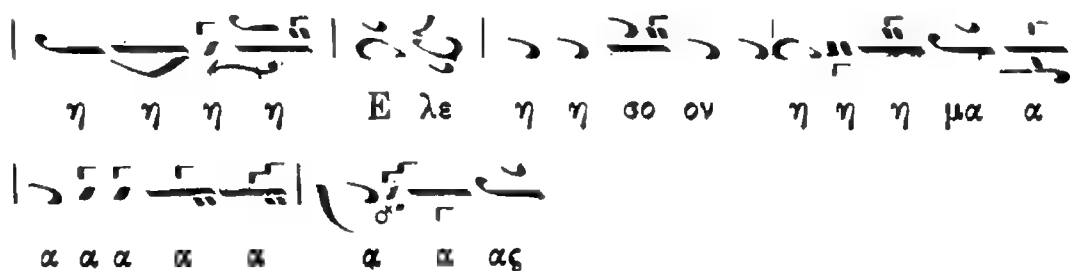 η η η η Ε λε η η σο ον η η η μα α
α α α α α α α ας